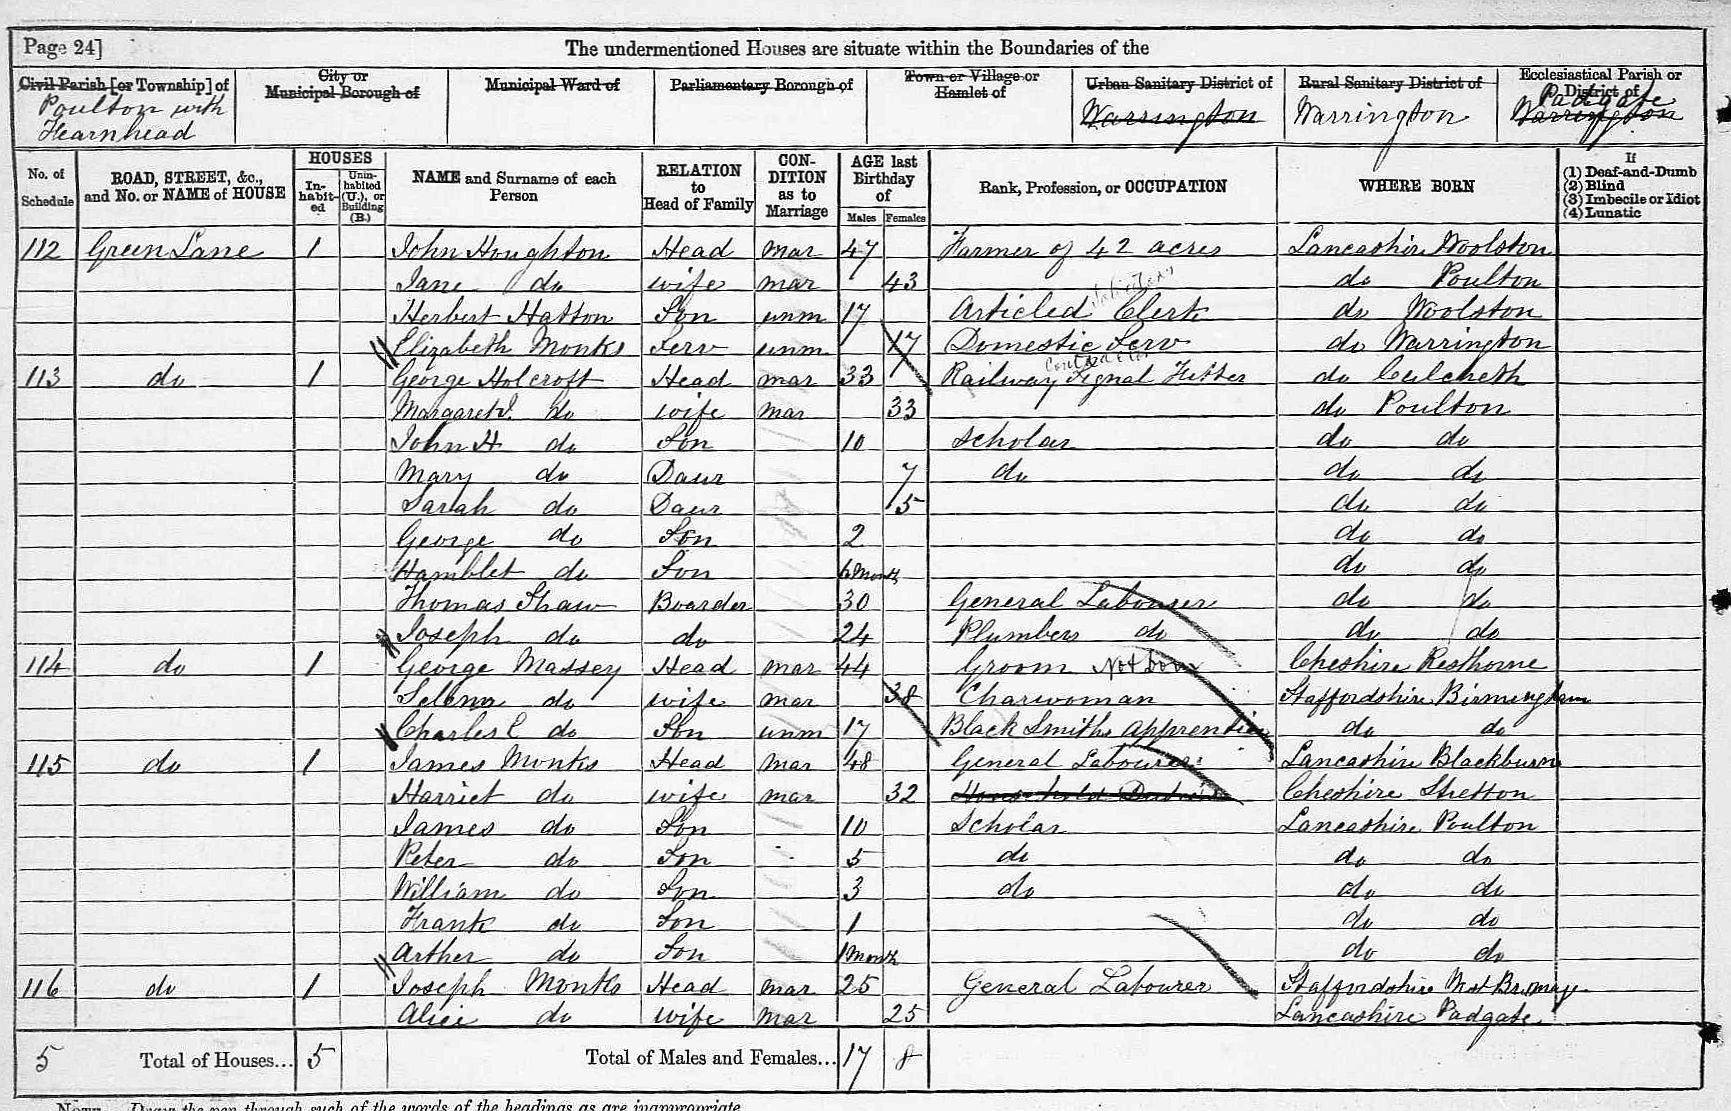 Page 24]
The undermentioned Houses are situate within the Boundaries of the
Civil Parish [or Township] of
City or Municipal Borough of
Municipal Ward of
Parliamentary Borough of
Town or Village or Hamlet of
Urban Sanitary District of
Rural Sanitary District of
Ecclesiastical Parish or District of
Poulton with Fearnhead
Warrington
Warrington
Padgate
Warrington
No. of Schedule
ROAD, STREET, &c., and No. or NAME of HOUSE
HOUSES
In-habit-ed
Unin-habited (U.), or Building (B.)
NAME and Surname of each Person
RELATION to Head of Family
CON-DITION as to Marriage
AGE last Birthday of
Males
Females
Rank, Profession, or OCCUPATION
WHERE BORN
If
(1) Deaf-and-Dumb
(2) Blind
(3) Imbecile or Idiot
(4) Lunatic
112 Green Lane 1 John Houghton Head mar 47 Farmer of 42 acres Lancashire Woolston
Jane do wife mar 43 do Poulton
Herbert Hatton Son unm 17 Articled Clerk do Woolston
Elizabeth Monks Serv unm 17 Domestic Serv do Warrington
113 do 1 George Holcroft Head mar 33 Railway Signal Fitter do Culcheth
Margaret J. do wife mar 33 do Poulton
John H do Son 10 Scholar do do
Mary do Daur 7 do do do
Sarah do Daur 5 do do
George do Son 2 do do
Hamblet do Son 6 Month do do
Thomas Shaw Boarder 30 General Labourer do do
Joseph do do 24 Plumbers do do do
114 do 1 George Massey Head mar 44 Groom Not Dom Cheshire Rosthorne
Selena do wife mar 38 Charwoman Staffordshire Birmingham
Charles E do Son unm 17 Black Smiths Apprentice do do
115 do 1 James Monks Head mar 48 General Labourer Lancashire Blackburn
Harriet do wife mar 32 Household Cheshire Stretton
James do Son 10 Scholar Lancashire Poulton
Peter do Son 5 do do do
William do Son 3 do do do
Frank do Son 1 do do
Arther do Son 1 Month do do
116 do 1 Joseph Monks Head mar 25 General Labourer Staffordshire
Alice do wife mar 25 Lancashire Padgate
5 Total of Houses... 5 Total of Males and Females... 17 8
NOTE. Draw the pen through such of the words of the headings as are inappropriate